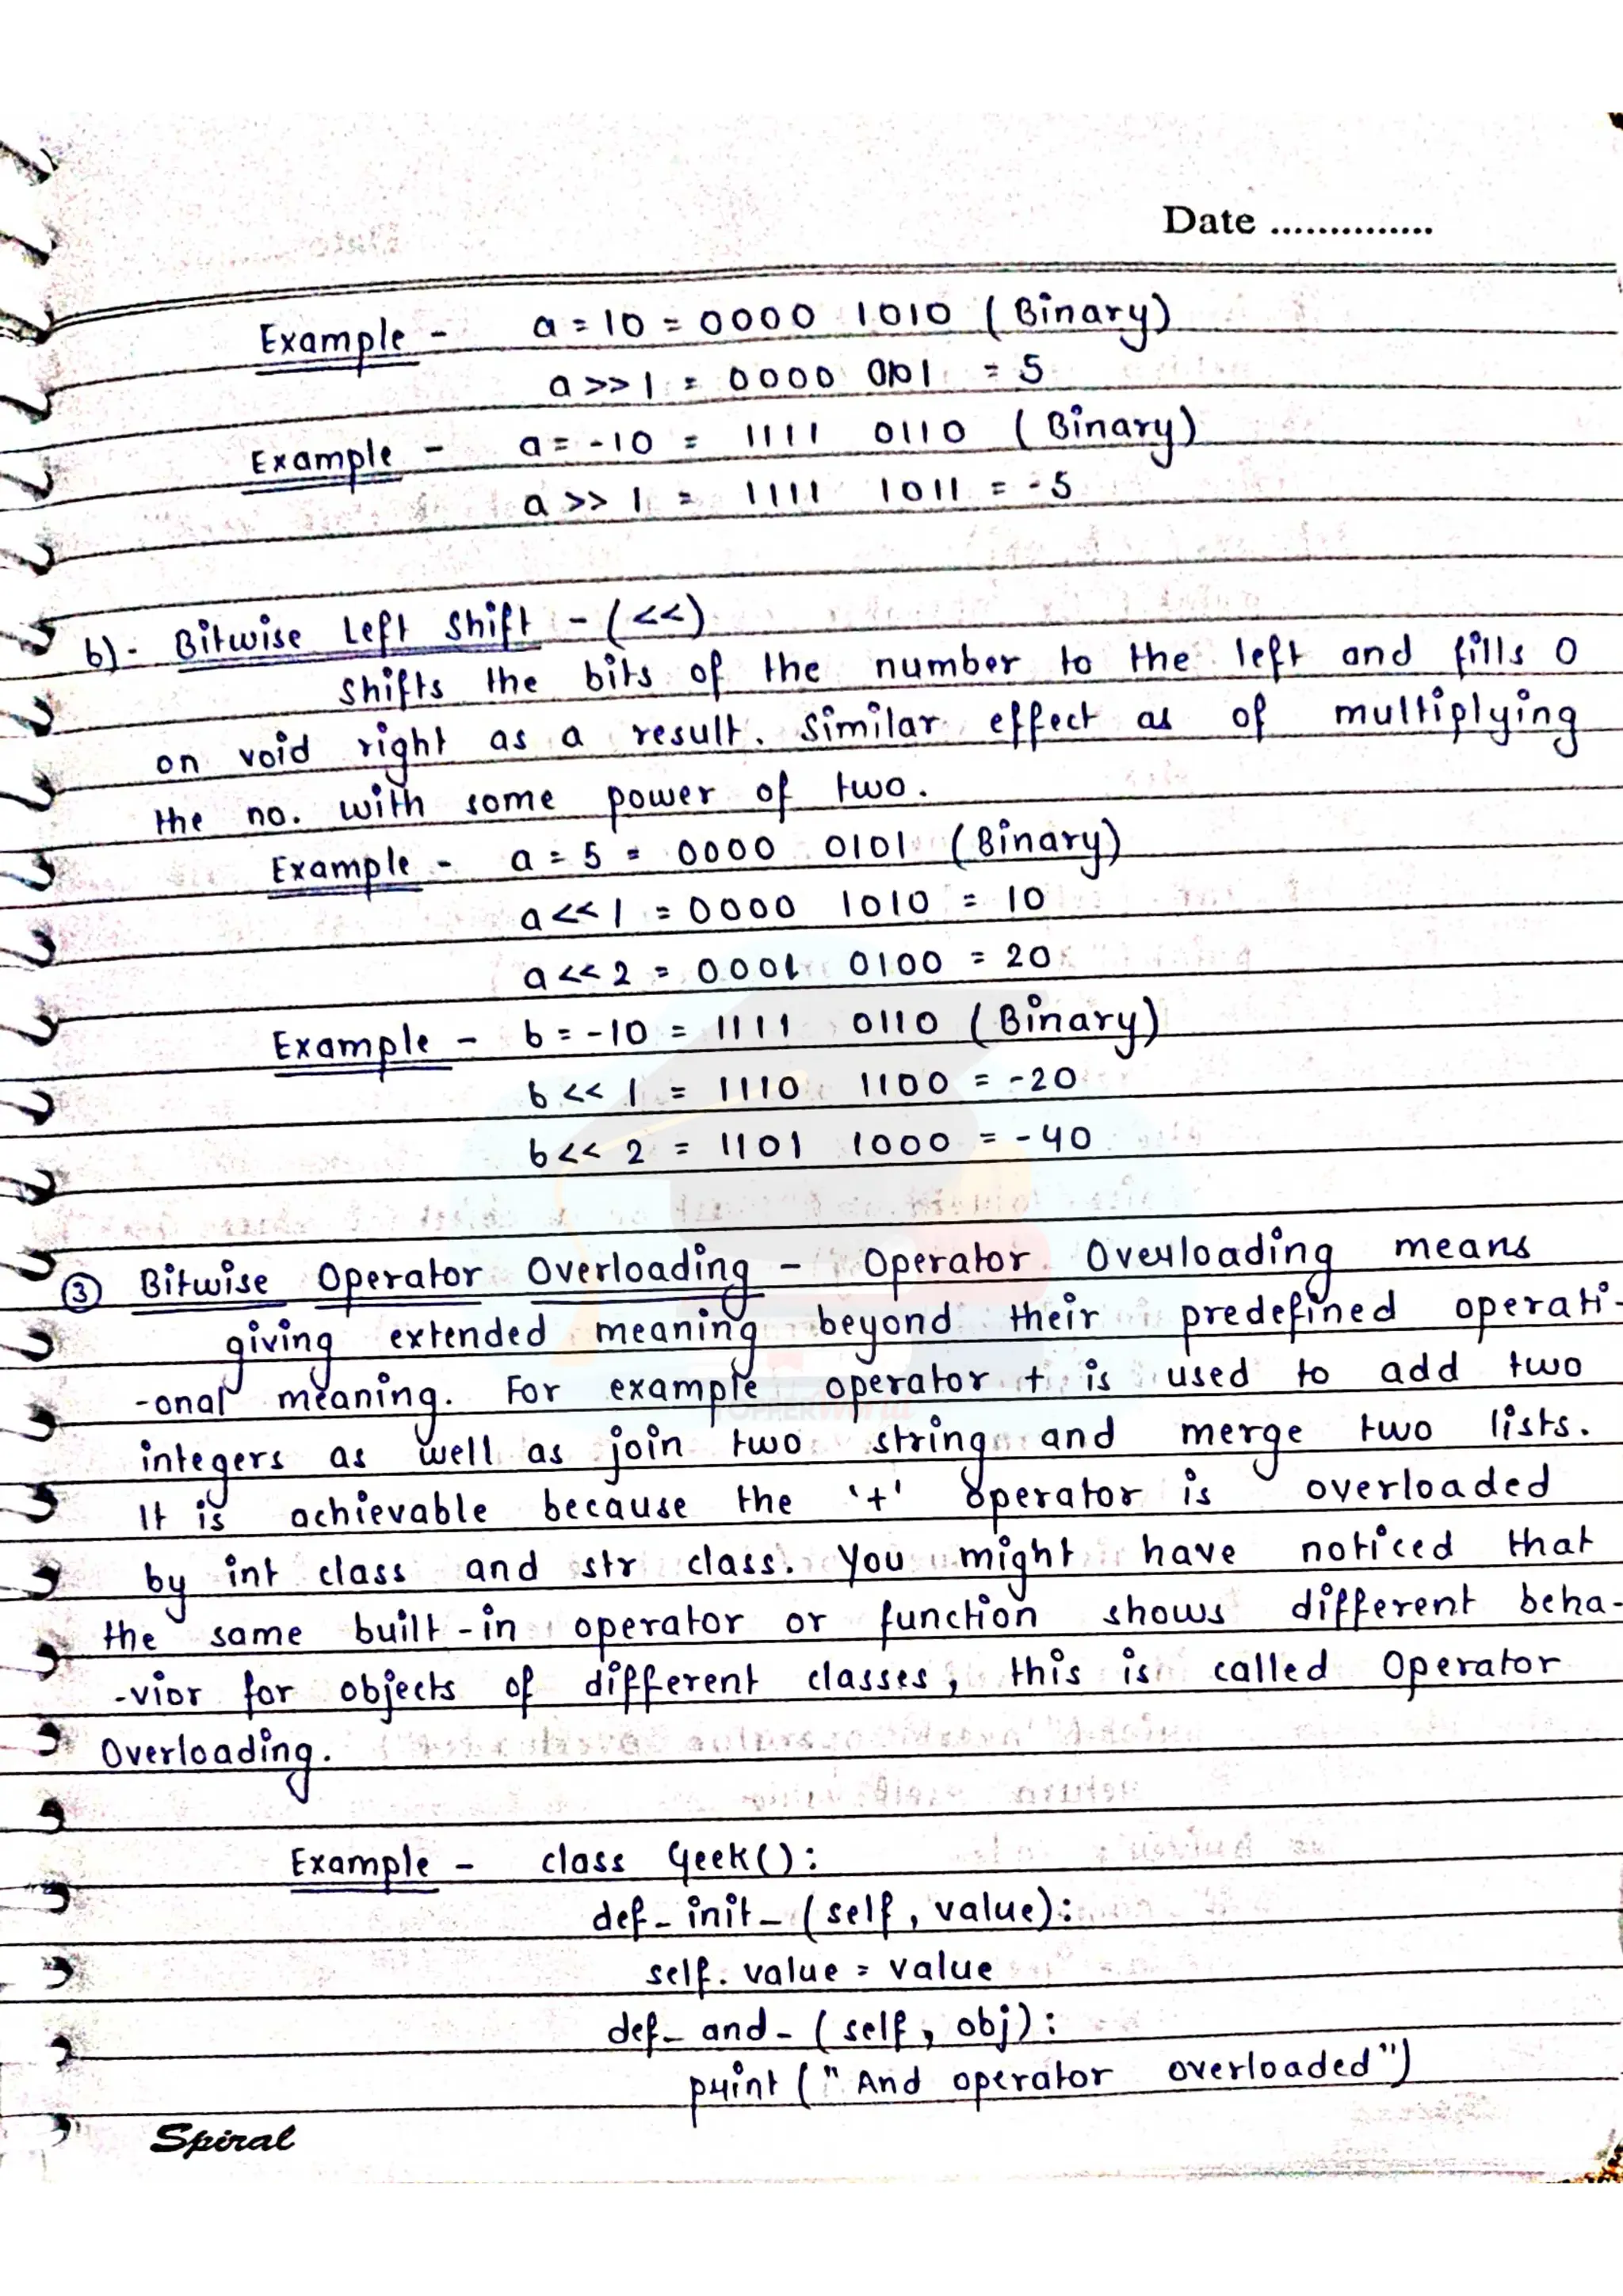 Date ..............
Example - a = 10 = 0000 1010 (Binary)
a >> 1 = 0000 0101 = 5
Example - a = -10 = 1111 0110 (Binary)
a >> 1 = 1111 1011 = -5
b)- Bitwise Left Shift - (<<)
Shifts the bits of the number to the left and fills 0
on void right as a result. Similar effect as of multiplying
the no. with some power of two.
Example - a = 5 = 0000 0101 (Binary)
a << 1 = 0000 1010 = 10
a << 2 = 0001 0100 = 20
Example - b = -10 = 1111 0110 (Binary)
b << 1 = 1110 1100 = -20
b << 2 = 1101 1000 = -40
③ Bitwise Operator Overloading - Operator Overloading means
giving extended meaning beyond their predefined operati-
-onal meaning. For example operator + is used to add two
integers as well as join two string and merge two lists.
It is achievable because the '+' operator is overloaded
by int class and str class. You might have noticed that
the same built-in operator or function shows different beha-
-vior for objects of different classes, this is called Operator
Overloading.
Example - class Geek():
def_ init_ (self, value):
self. value = value
def_ and_ (self, obj):
print ("And operator overloaded")
Spiral
TOPPERWorld